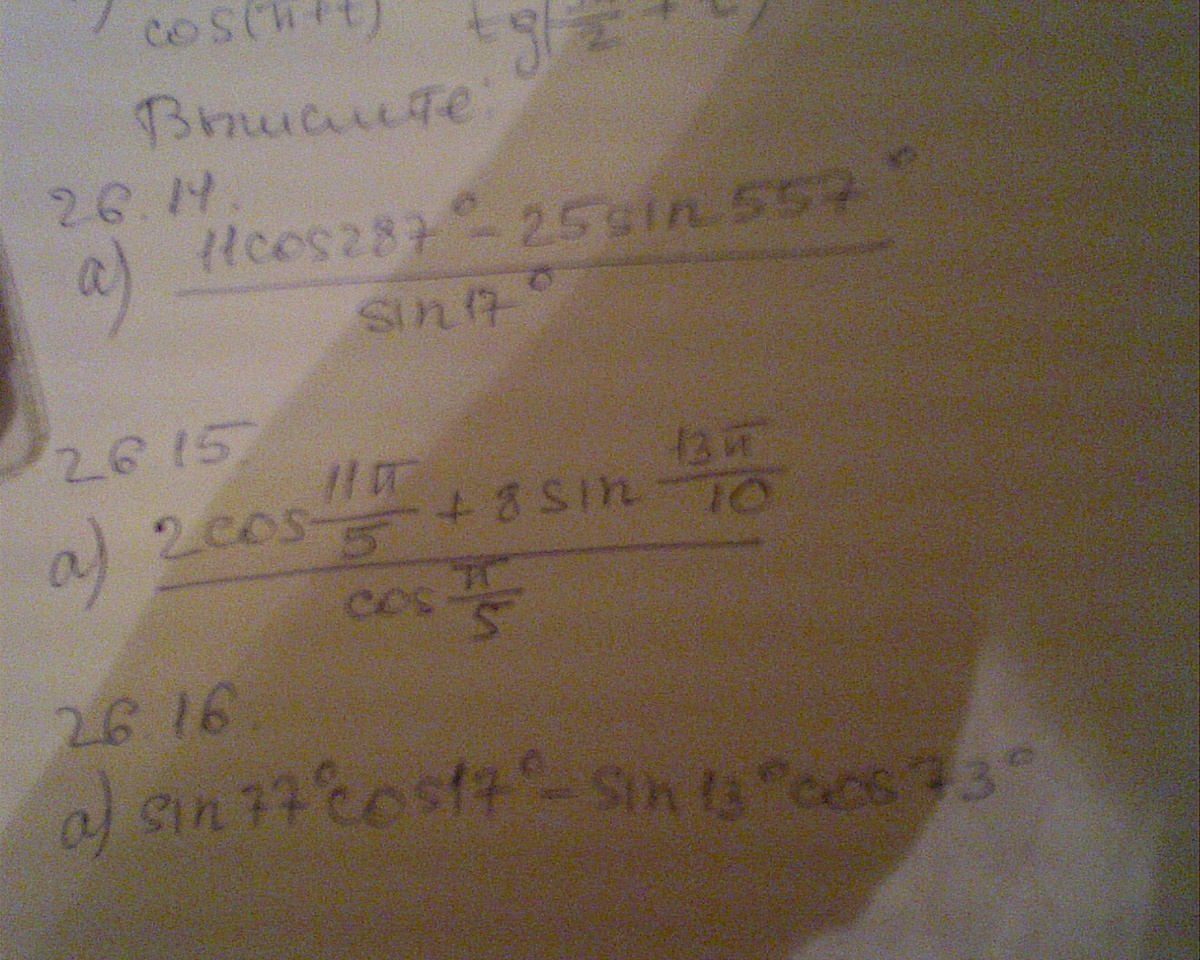 cos(π+t) tg(
Вычислите:
26.14.
а) (11cos287° - 25sin557°) / sin17°
26 15.
а) (2cos 11π/5 + 8 sin 13π/10) / cos π/5
26.16.
а) sin77°cos17° - sin13°cos73°